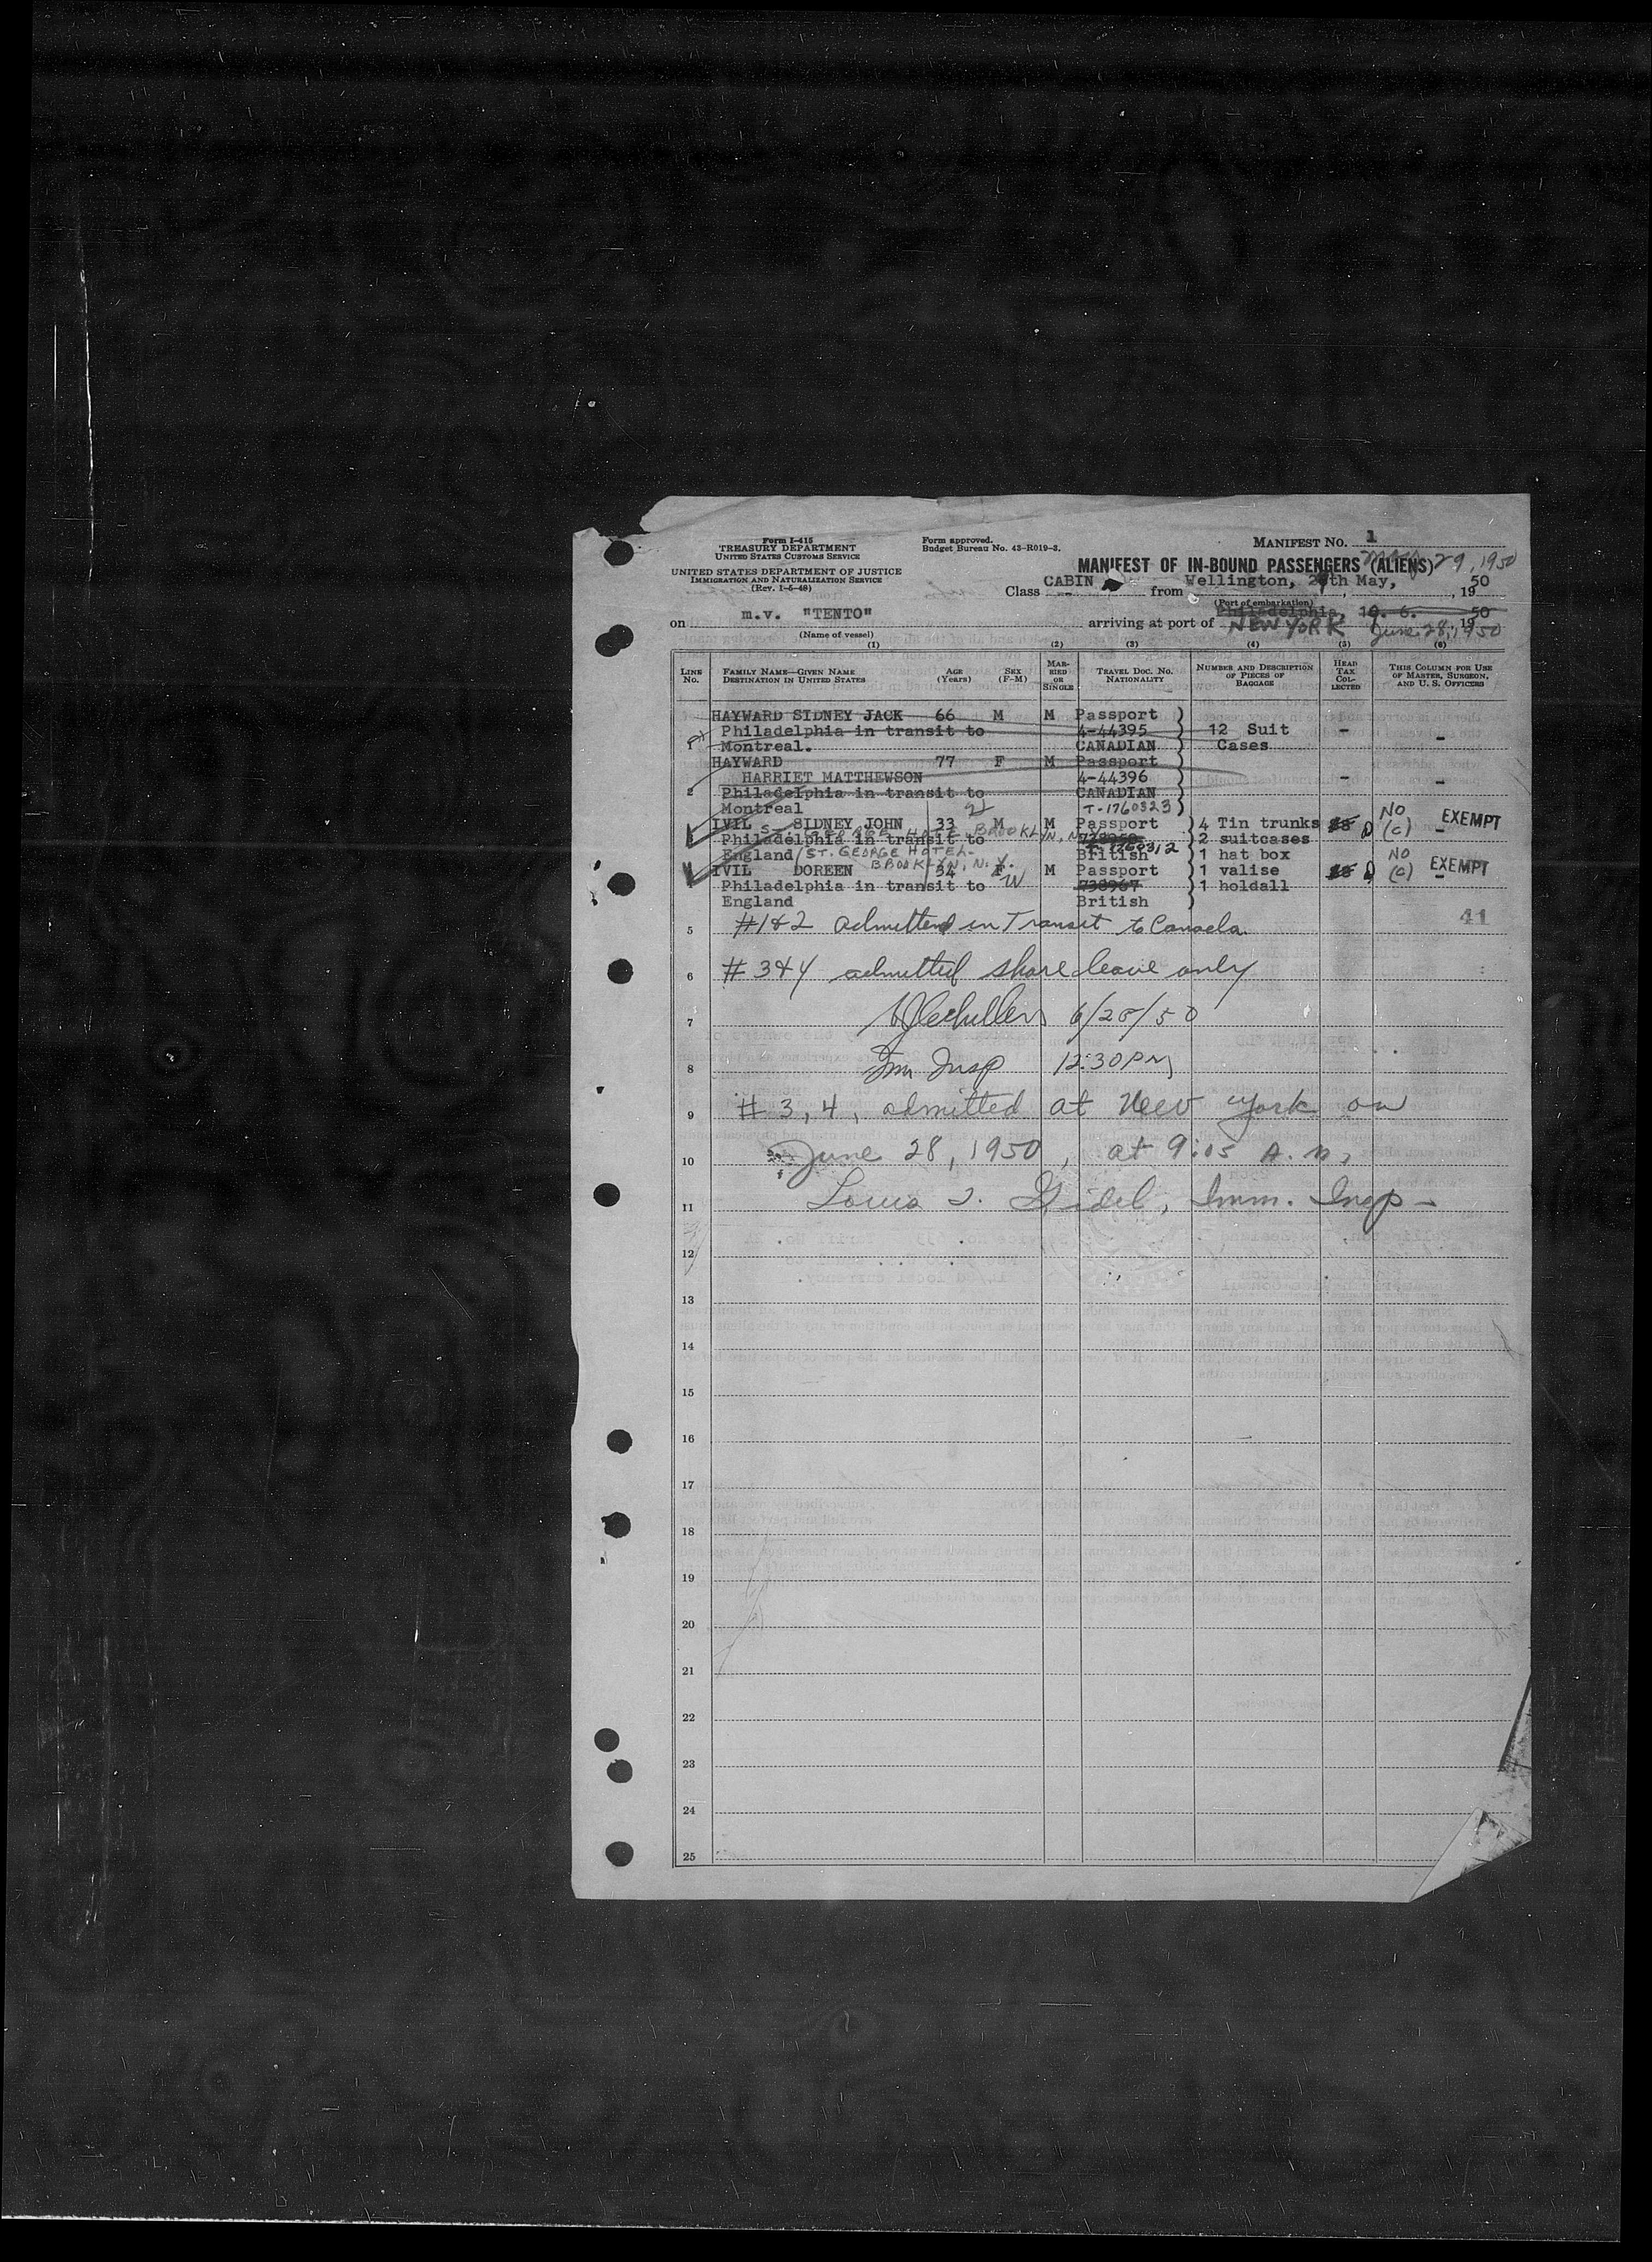 Form I-415
TREASURY DEPARTMENT
UNITED STATES CUSTOMS SERVICE
UNITED STATES DEPARTMENT OF JUSTICE
IMMIGRATION AND NATURALIZATION SERVICE
(Rev. 1-5-48)
Form approved.
Budget Bureau No. 43-R019-3.
MANIFEST NO. 1
MANIFEST OF IN-BOUND PASSENGERS (ALIENS) May 29, 1950
Class CABIN from Wellington, 29th May, , 1950
(Port of embarkation)
on m.v. "TENTO" arriving at port of Philadelphia, 19. 6. , 1950
NEW YORK June 28, 1950
(Name of vessel)
(1) (2) (3) (4) (5) (6)
LINE NO. FAMILY NAME—GIVEN NAME DESTINATION IN UNITED STATES AGE (Years) SEX (F-M) MARRIED OR SINGLE TRAVEL DOC. NO. NATIONALITY NUMBER AND DESCRIPTION OF PIECES OF BAGGAGE HEAD TAX COLLECTED THIS COLUMN FOR USE OF MASTER, SURGEON, AND U. S. OFFICERS
HAYWARD SIDNEY JACK 66 M M Passport )
Philadelphia in transit to 4-44395 ) 12 Suit - -
1 Montreal. CANADIAN ) Cases
HAYWARD 77 F M Passport )
HARRIET MATTHEWSON 4-44396 ) - -
2 Philadelphia in transit to CANADIAN )
Montreal T-1760323 )
IVIL SIDNEY JOHN 33 M M Passport ) 4 Tin trunks NO (c) - EXEMPT
ST. GEORGE HOTEL BROOKLYN, N.Y.
Philadelphia in transit to ) 2 suitcases
T-1760312
England / ST. GEORGE HOTEL- British ) 1 hat box NO
BROOKLYN, N.Y.
IVIL DOREEN 34 F M Passport ) 1 valise (c) - EXEMPT
W
Philadelphia in transit to 738967 ) 1 holdall
England British )
41
5 #1&2 admitted in Transit to Canada
6 #3&4 admitted shore leave only
7 6/20/50
8 Imm Insp 12:30 PM
9 # 3, 4, admitted at New York on
10 June 28, 1950, at 9:05 A.M,
11 Louis Imm. Insp-
12
13
14
15
16
17
18
19
20
21
22
23
24
25